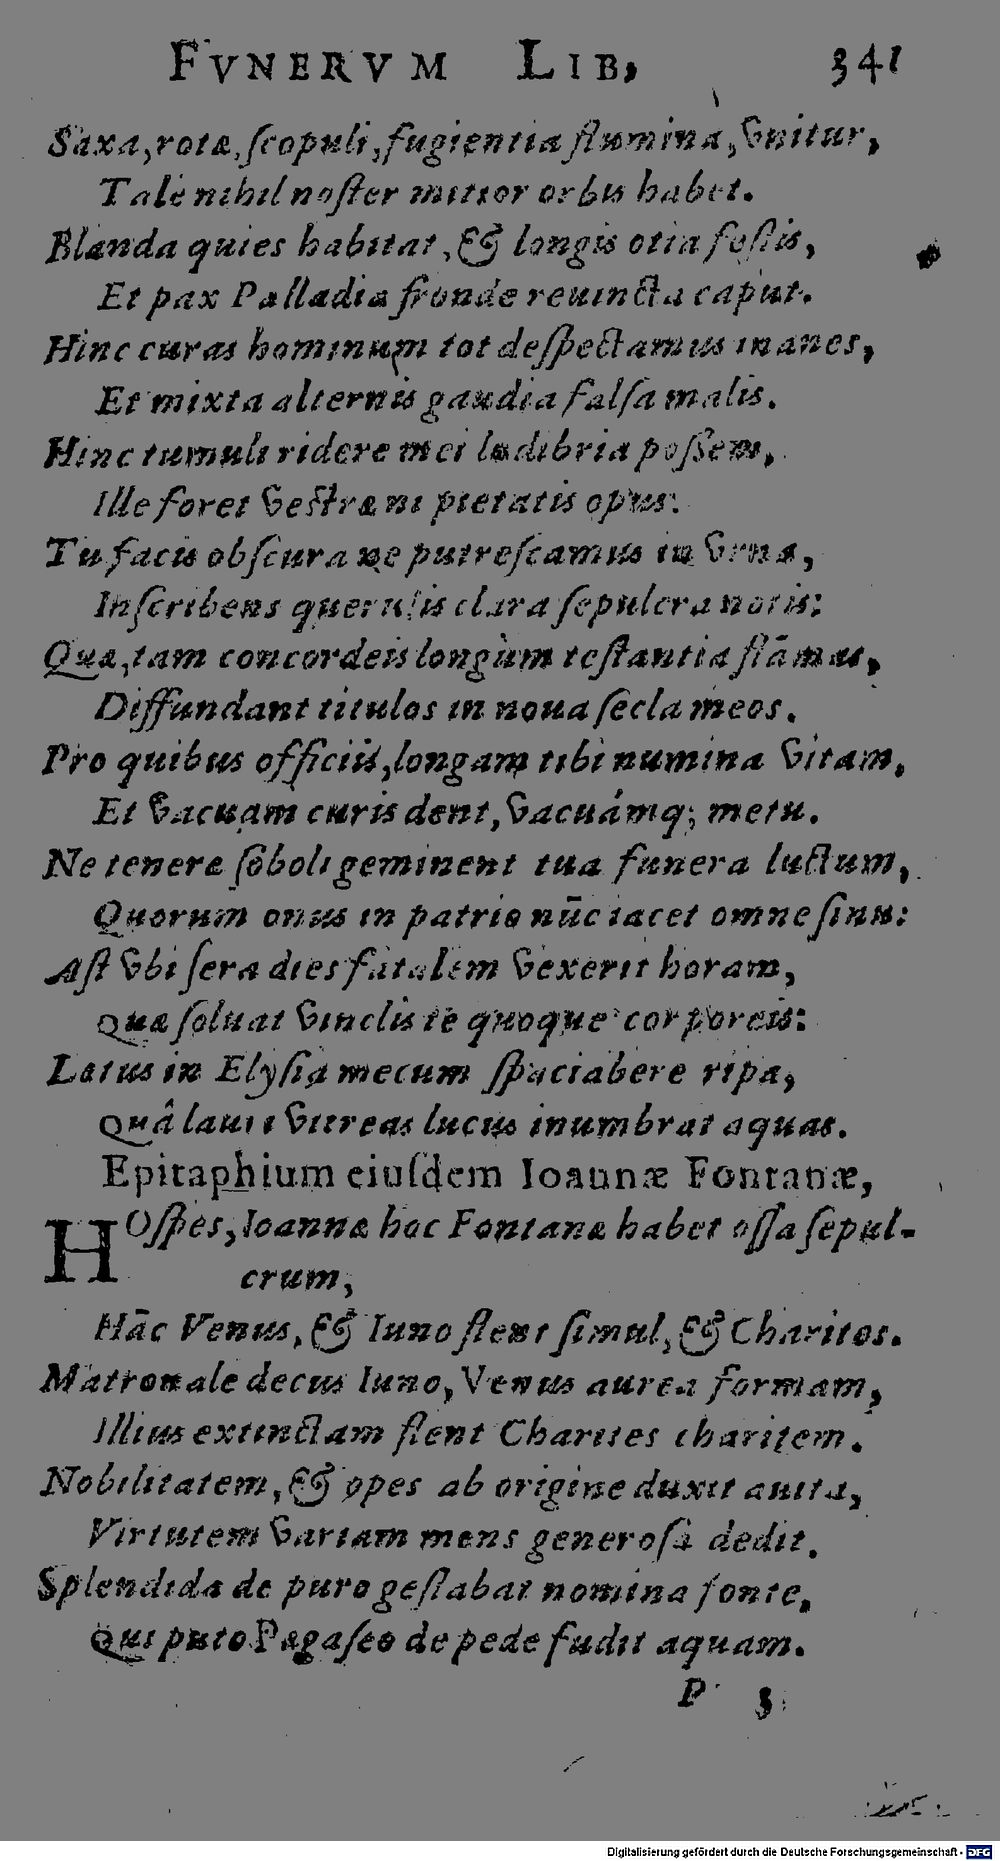 FVNERVM LIB, 341
Saxa, rotæ, ſcopuli, fugientia flumina, vnitur,
Tale nihil noſter mitior orbis habet.
Blanda quies habitat, & longis otia foſſis,
Et pax Palladia fronde reuincta caput.
Hinc curas hominum tot deſpectamus inanes,
Et mixta alternis gaudia falſa malis.
Hinc tumuli ridere mei ludibria poſſem,
Ille foret veſtræ ni pietatis opus.
Tu facis obſcura ne putreſcamus in vrna,
Inſcribens querulis clara ſepulcra notis:
Quæ, tam concordeis longùm teſtantia flāmas,
Diffundant titulos in noua ſecla meos.
Pro quibus officiis, longam tibi numina vitam,
Et vacuam curis dent, vacuámq; metu.
Ne teneræ ſoboli geminent tua funera luctum,
Quorum onus in patrio nūc iacet omne ſinu:
Aſt vbi ſera dies fatalem vexerit horam,
Quæ ſoluat vinclis te quoque corporeis:
Lætus in Elyſia mecum ſpaciabere ripa,
Quâ lauri vitreas lucus inumbrat aquas.
Epitaphium eiuſdem Ioannæ Fontanæ,
HOſpes, Ioannæ hoc Fontanæ habet oſſa ſepul-
crum,
Hāc Venus, & Iuno flent ſimul, & Charites.
Matronale decus Iuno, Venus aurea formam,
Illius extinctam flent Charites charitem.
Nobilitatem, & opes ab origine duxit auita,
Virtutem variam mens generoſa dedit.
Splendida de puro geſtabat nomina fonte,
Qui puto Pegaſeo de pede fudit aquam.
P 3
Digitalisierung gefördert durch die Deutsche Forschungsgemeinschaft - DFG